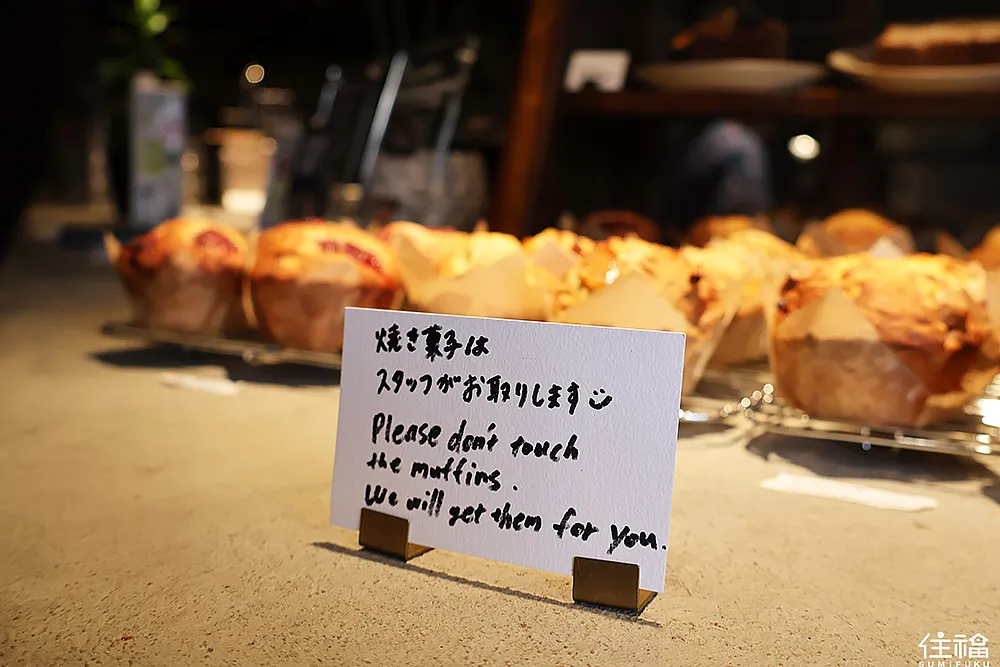 焼き菓子は
スタッフがお取りします
Please don't touch
the muffins.
We will get them for you.
住福
SUMIFUKU